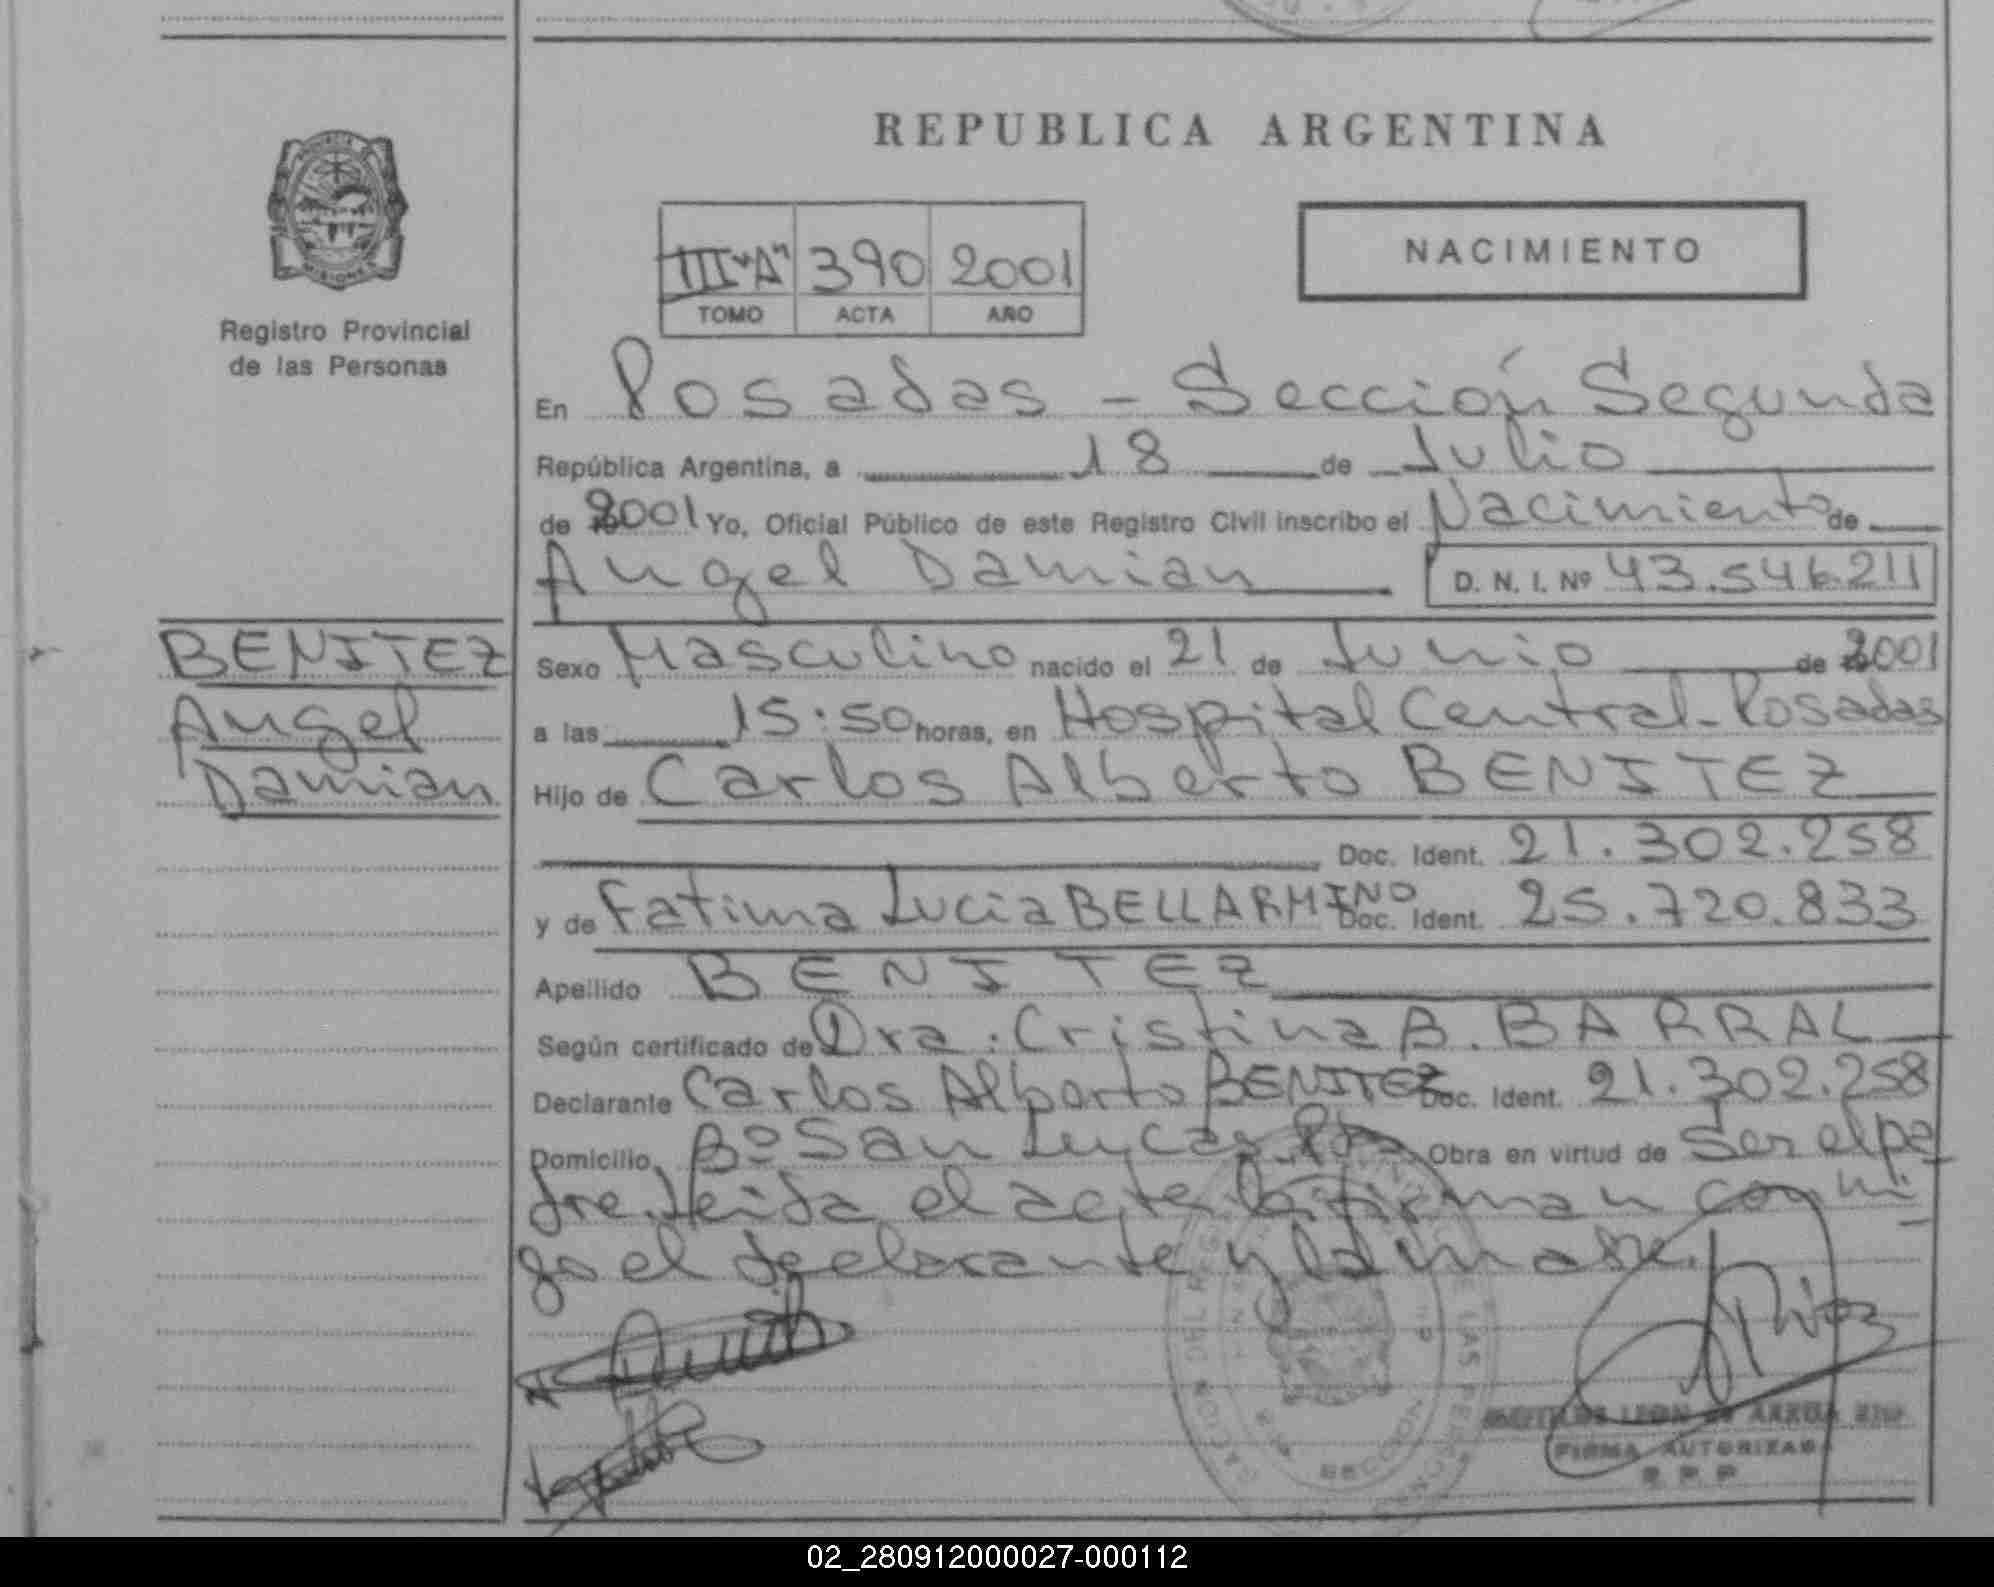 REPUBLICA ARGENTINA
NACIMIENTO
III "A" 390 2001
TOMO ACTA AÑO
Registro Provincial
de las Personas
En Posadas - Sección Segunda
República Argentina, a 18 de Julio
de 2001 Yo, Oficial Público de este Registro Civil inscribo el Nacimiento de
Angel Damian D. N. I. Nº 43.546.211
BENITEZ
Angel
Damian
Sexo Masculino nacido el 21 de Junio de 2001
a las 15:50 horas, en Hospital Central - Posadas
Hijo de Carlos Alberto BENITEZ
Doc. Ident. 21.302.258
y de Fatima Lucia BELLARMINO Doc. Ident. 25.720.833
Apellido BENITEZ
Según certificado de Dra. Cristina B. BARRAL
Declarante Carlos Alberto BENITEZ Doc. Ident. 21.302.258
Domicilio Bº San Lucas Obra en virtud de Ser el pa
dre. Leida el acta la firman conmi
go el declarante y la madre.
FIRMA AUTORIZADA
R. P. P.
02_280912000027-000112